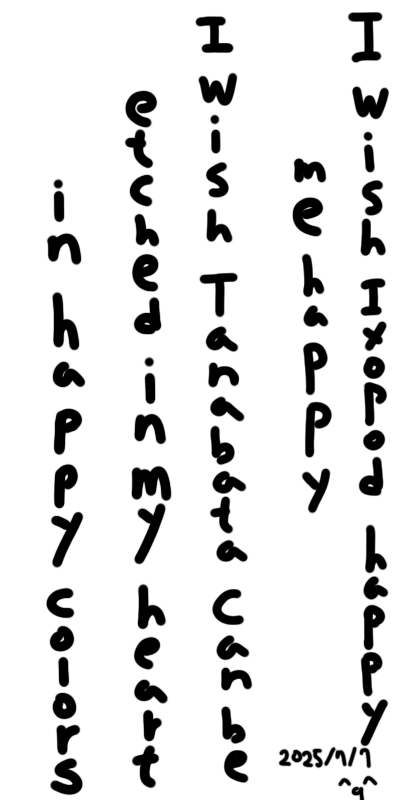 I wish Ixopod happy
me happy
2025/7/7
^q^
I wish Tanabata can be
etched in my heart
in happy colors